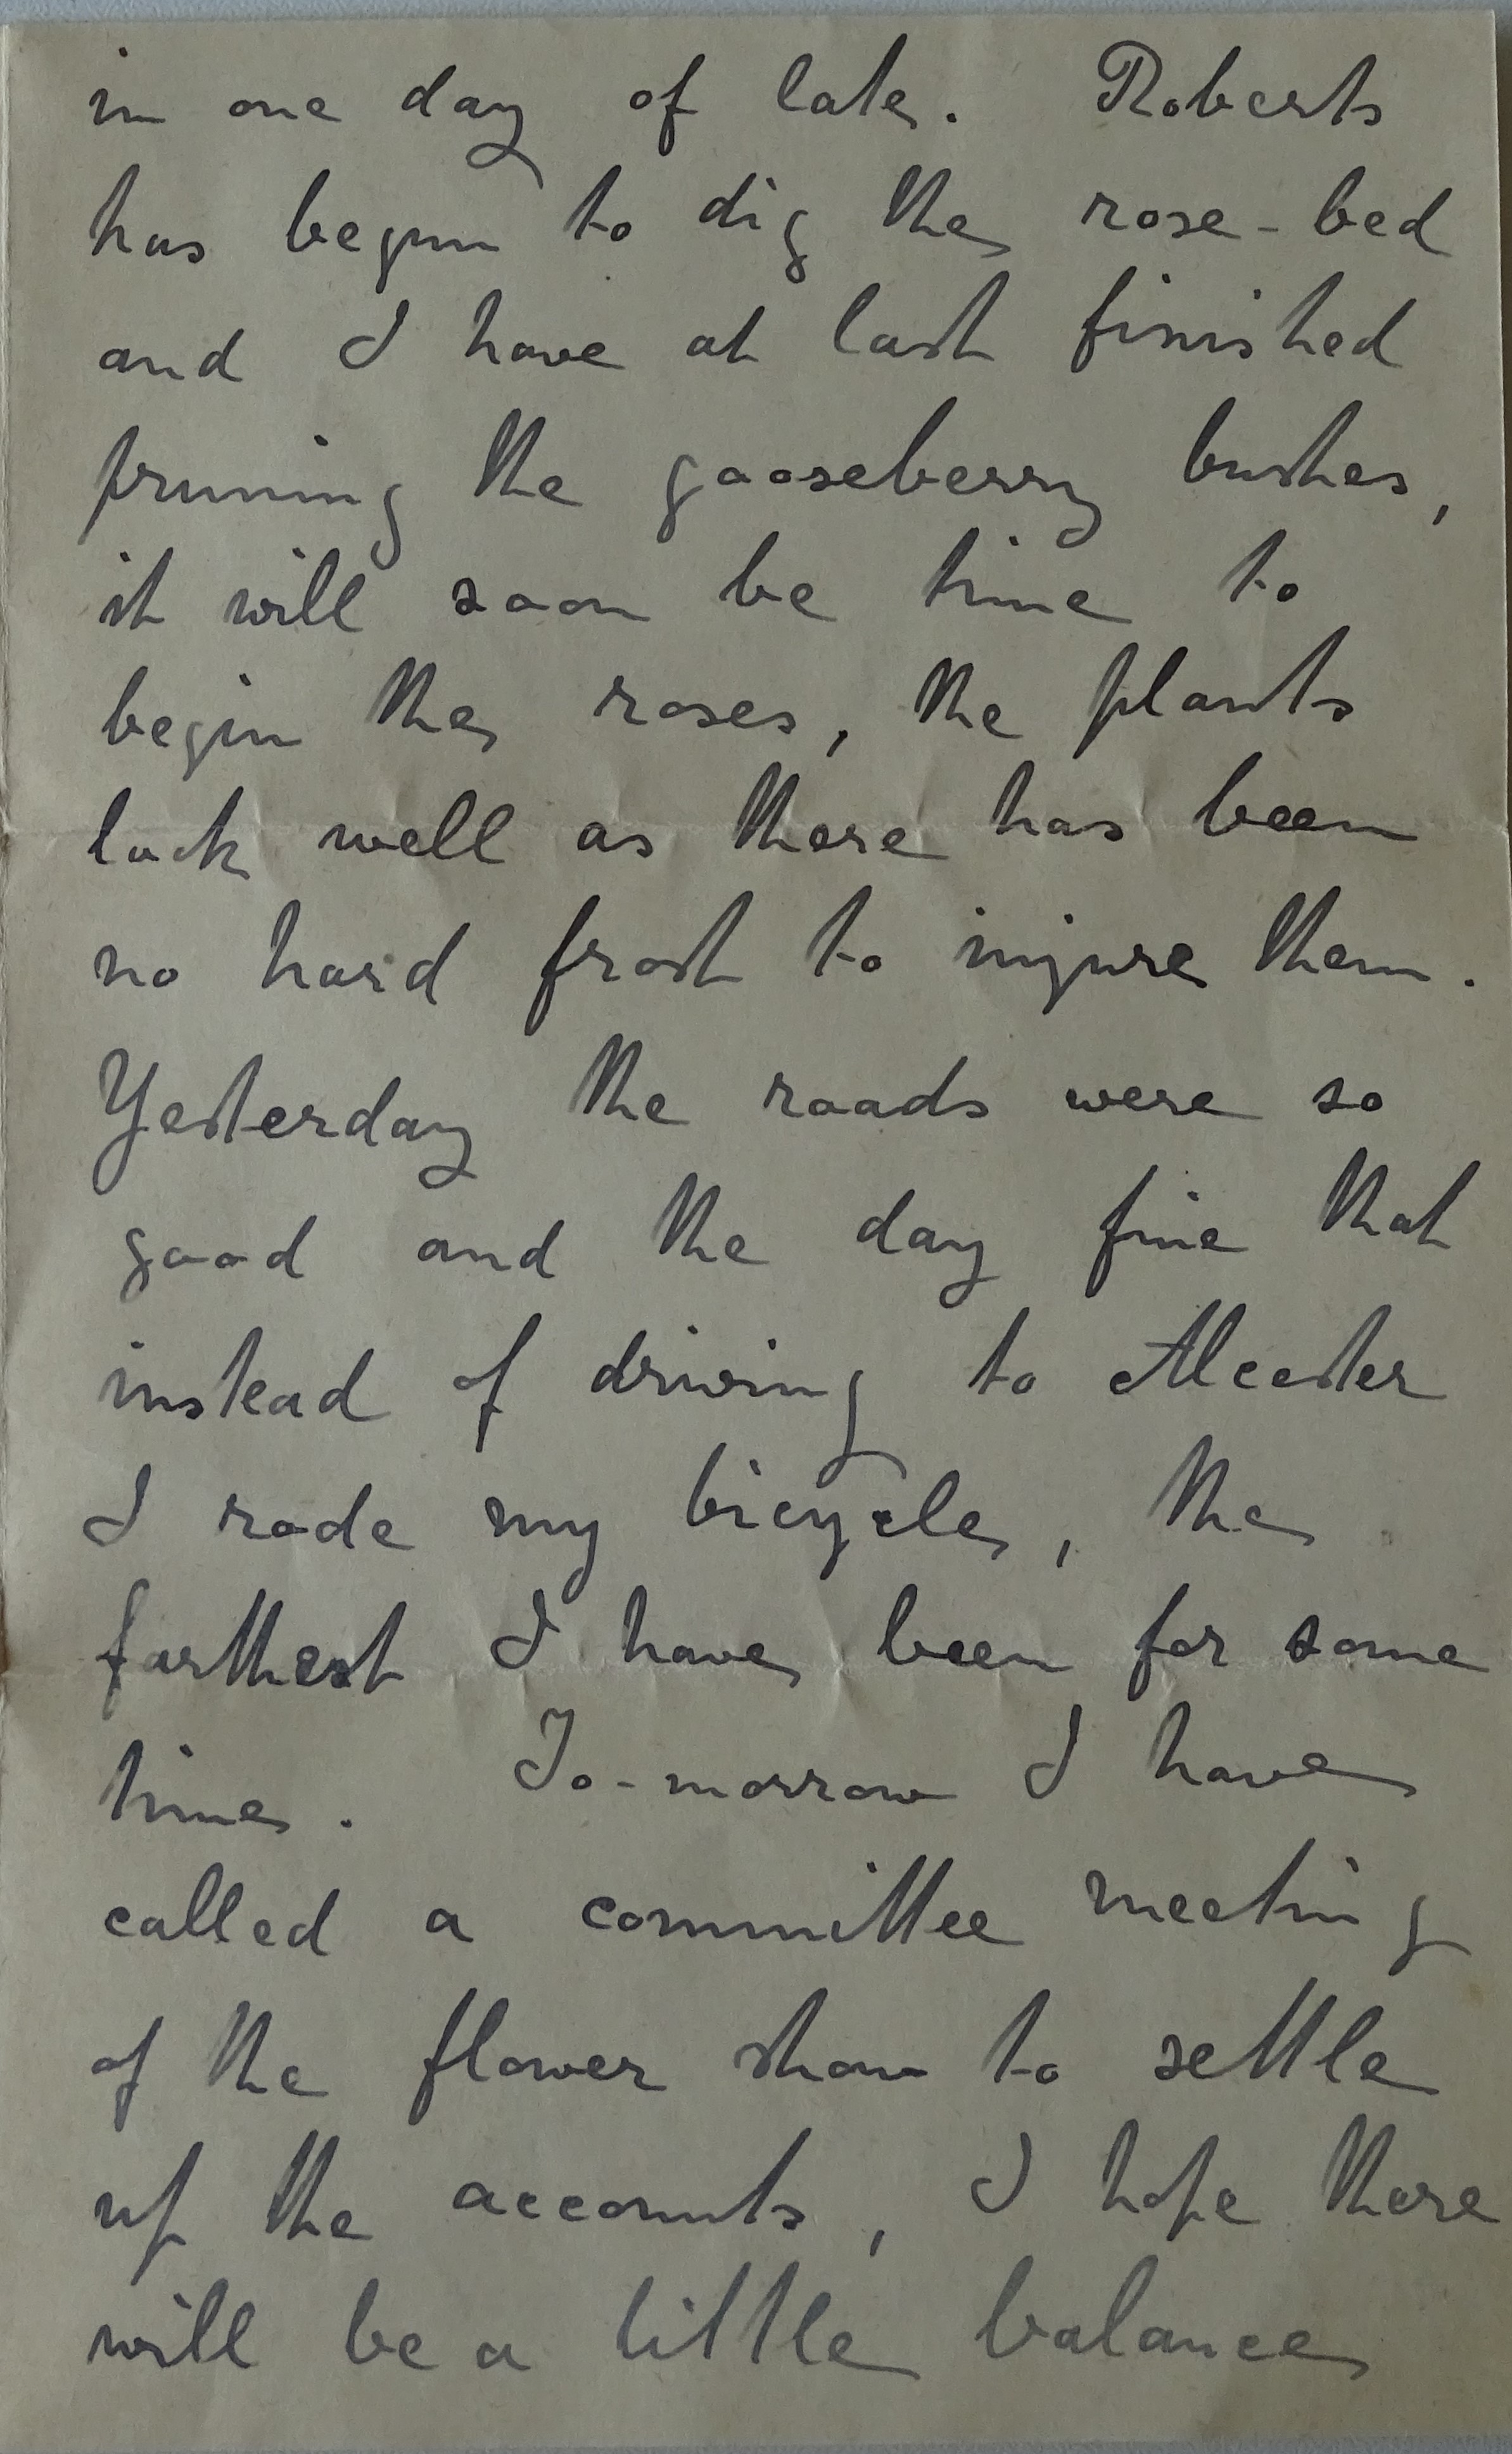 in one day of late. Roberts
has begun to dig the rose-bed
and I have at last finished
pruning the gooseberry bushes,
it will soon be time to
begin the roses, the plants
look well as there has been
no hard frost to injure them.
Yesterday the roads were so
good and the day fine that
instead of driving to Alcester
I rode my bicycle, the
farthest I have been for some
time. To-morrow I have
called a committee meeting
of the flower show to settle
up the accounts, I hope there
will be a little balance